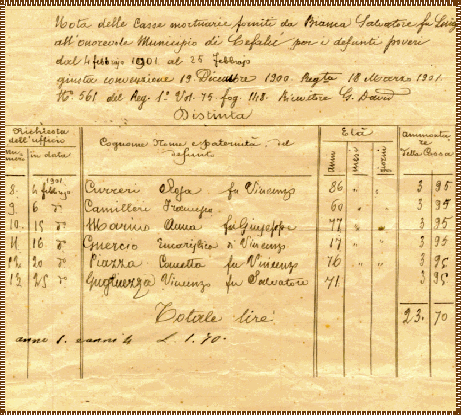 Nota delle Casse mortuarie fornite da Branca Salvatore fu Luigi
all'onorevole Municipio di Cefalù per i defunti poveri
dal 4 febbrajo 1901 al 25 febbrajo
giusta convenzione 19 Dicembre 1900. Regta 18 Marzo 1901
N° 561 del Reg. 1° Vol. 75 fog. 148. Ricevitore G. David
Distinta
Richiesta dell'ufficio Cognome Nome e paternità del defunto Età Ammontare della Cassa
numeri in data anni mesi giorni
1901
8. 4 febbrajo Curreri Rosa fu Vincenzo 86 " " 3 95
9. 6 d° Camilleri Francesco 60 " " 3 95
10. 15 d° Marino Anna fu Giuseppe 77 " " 3 95
11 16 d° Guercio di Vincenzo 17 " " 3 95
12. 20 d° Piazza Concetta fu Vincenzo 76 " 3 95
13. 25 d° Gugliuzza Vincenzo fu Salvatore 71 3 95
Totale lire 23. 70
anno 1. e anni 4 L 1. 70.